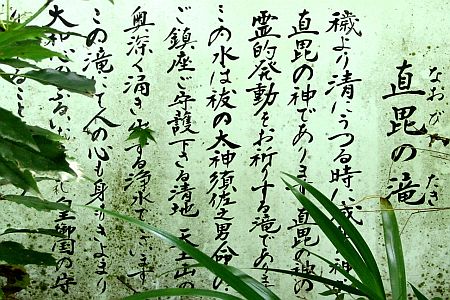 直毘の滝
なおび たき
穢より清にうつる時に成
直毘の神であります 直毘の神の
霊的発動をお祈りする滝であります
この水は祓の大神須佐之男命の
ご鎮座ご守護下さる清地 天王山の
奥深く涌き出する浄水でございます
この滝にて人の心も身もきよまり
大和心のふるい 皇御国の守
ること